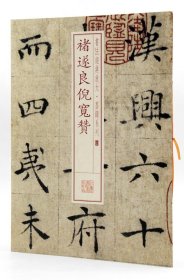 褚遂良倪寬贊
漢興六十
府
而四夷未